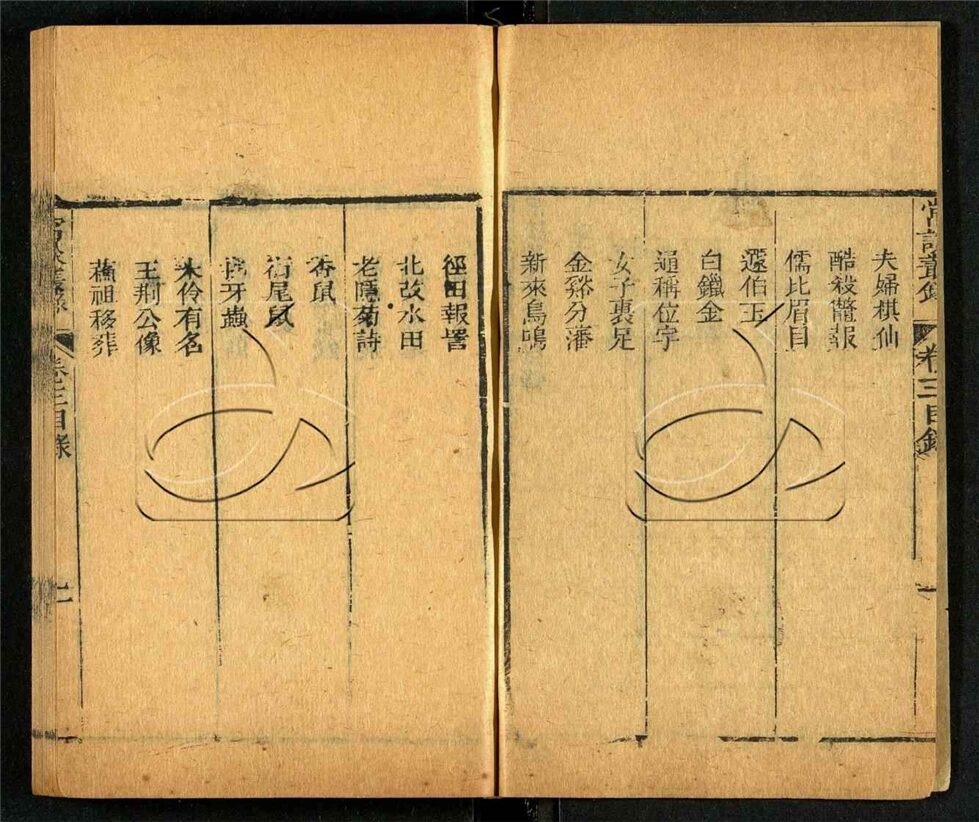 常談叢錄 卷三目錄 一
夫婦棋仙
酷殺鼈報
儒比眉目
蘧伯玉
白鑞金
通稱位字
女子裹足
金谿分藩
新來鳥鳴
徑田報詈
北改水田
老隱菊詩
香鼠
銜尾鼠
牙蟲
朱伶有名
王荊公像
蕭祖移葬
常談叢錄 卷三目錄 二